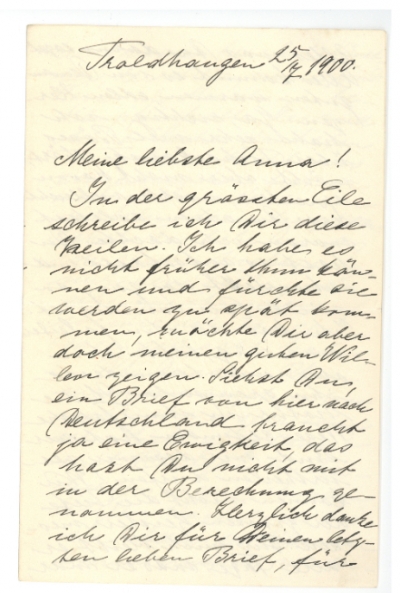 Troldhaugen 25/7 1900.
Meine liebste Anna!
In der grössten Eile
schreibe ich Dir diese
Zeilen. Ich habe es
nicht früher thun kön-
nen und fürchte sie
werden zu spät kom-
men, möchte Dir aber
doch meinen guten Wil-
len zeigen. Siehst Du,
ein Brief von hier nach
Deutschland braucht
ja eine Ewigkeit, das
hast Du nicht mit
in der Berechnung ge-
nommen. Herzlich danke
ich Dir für Deinen letz-
ten lieben Brief, für